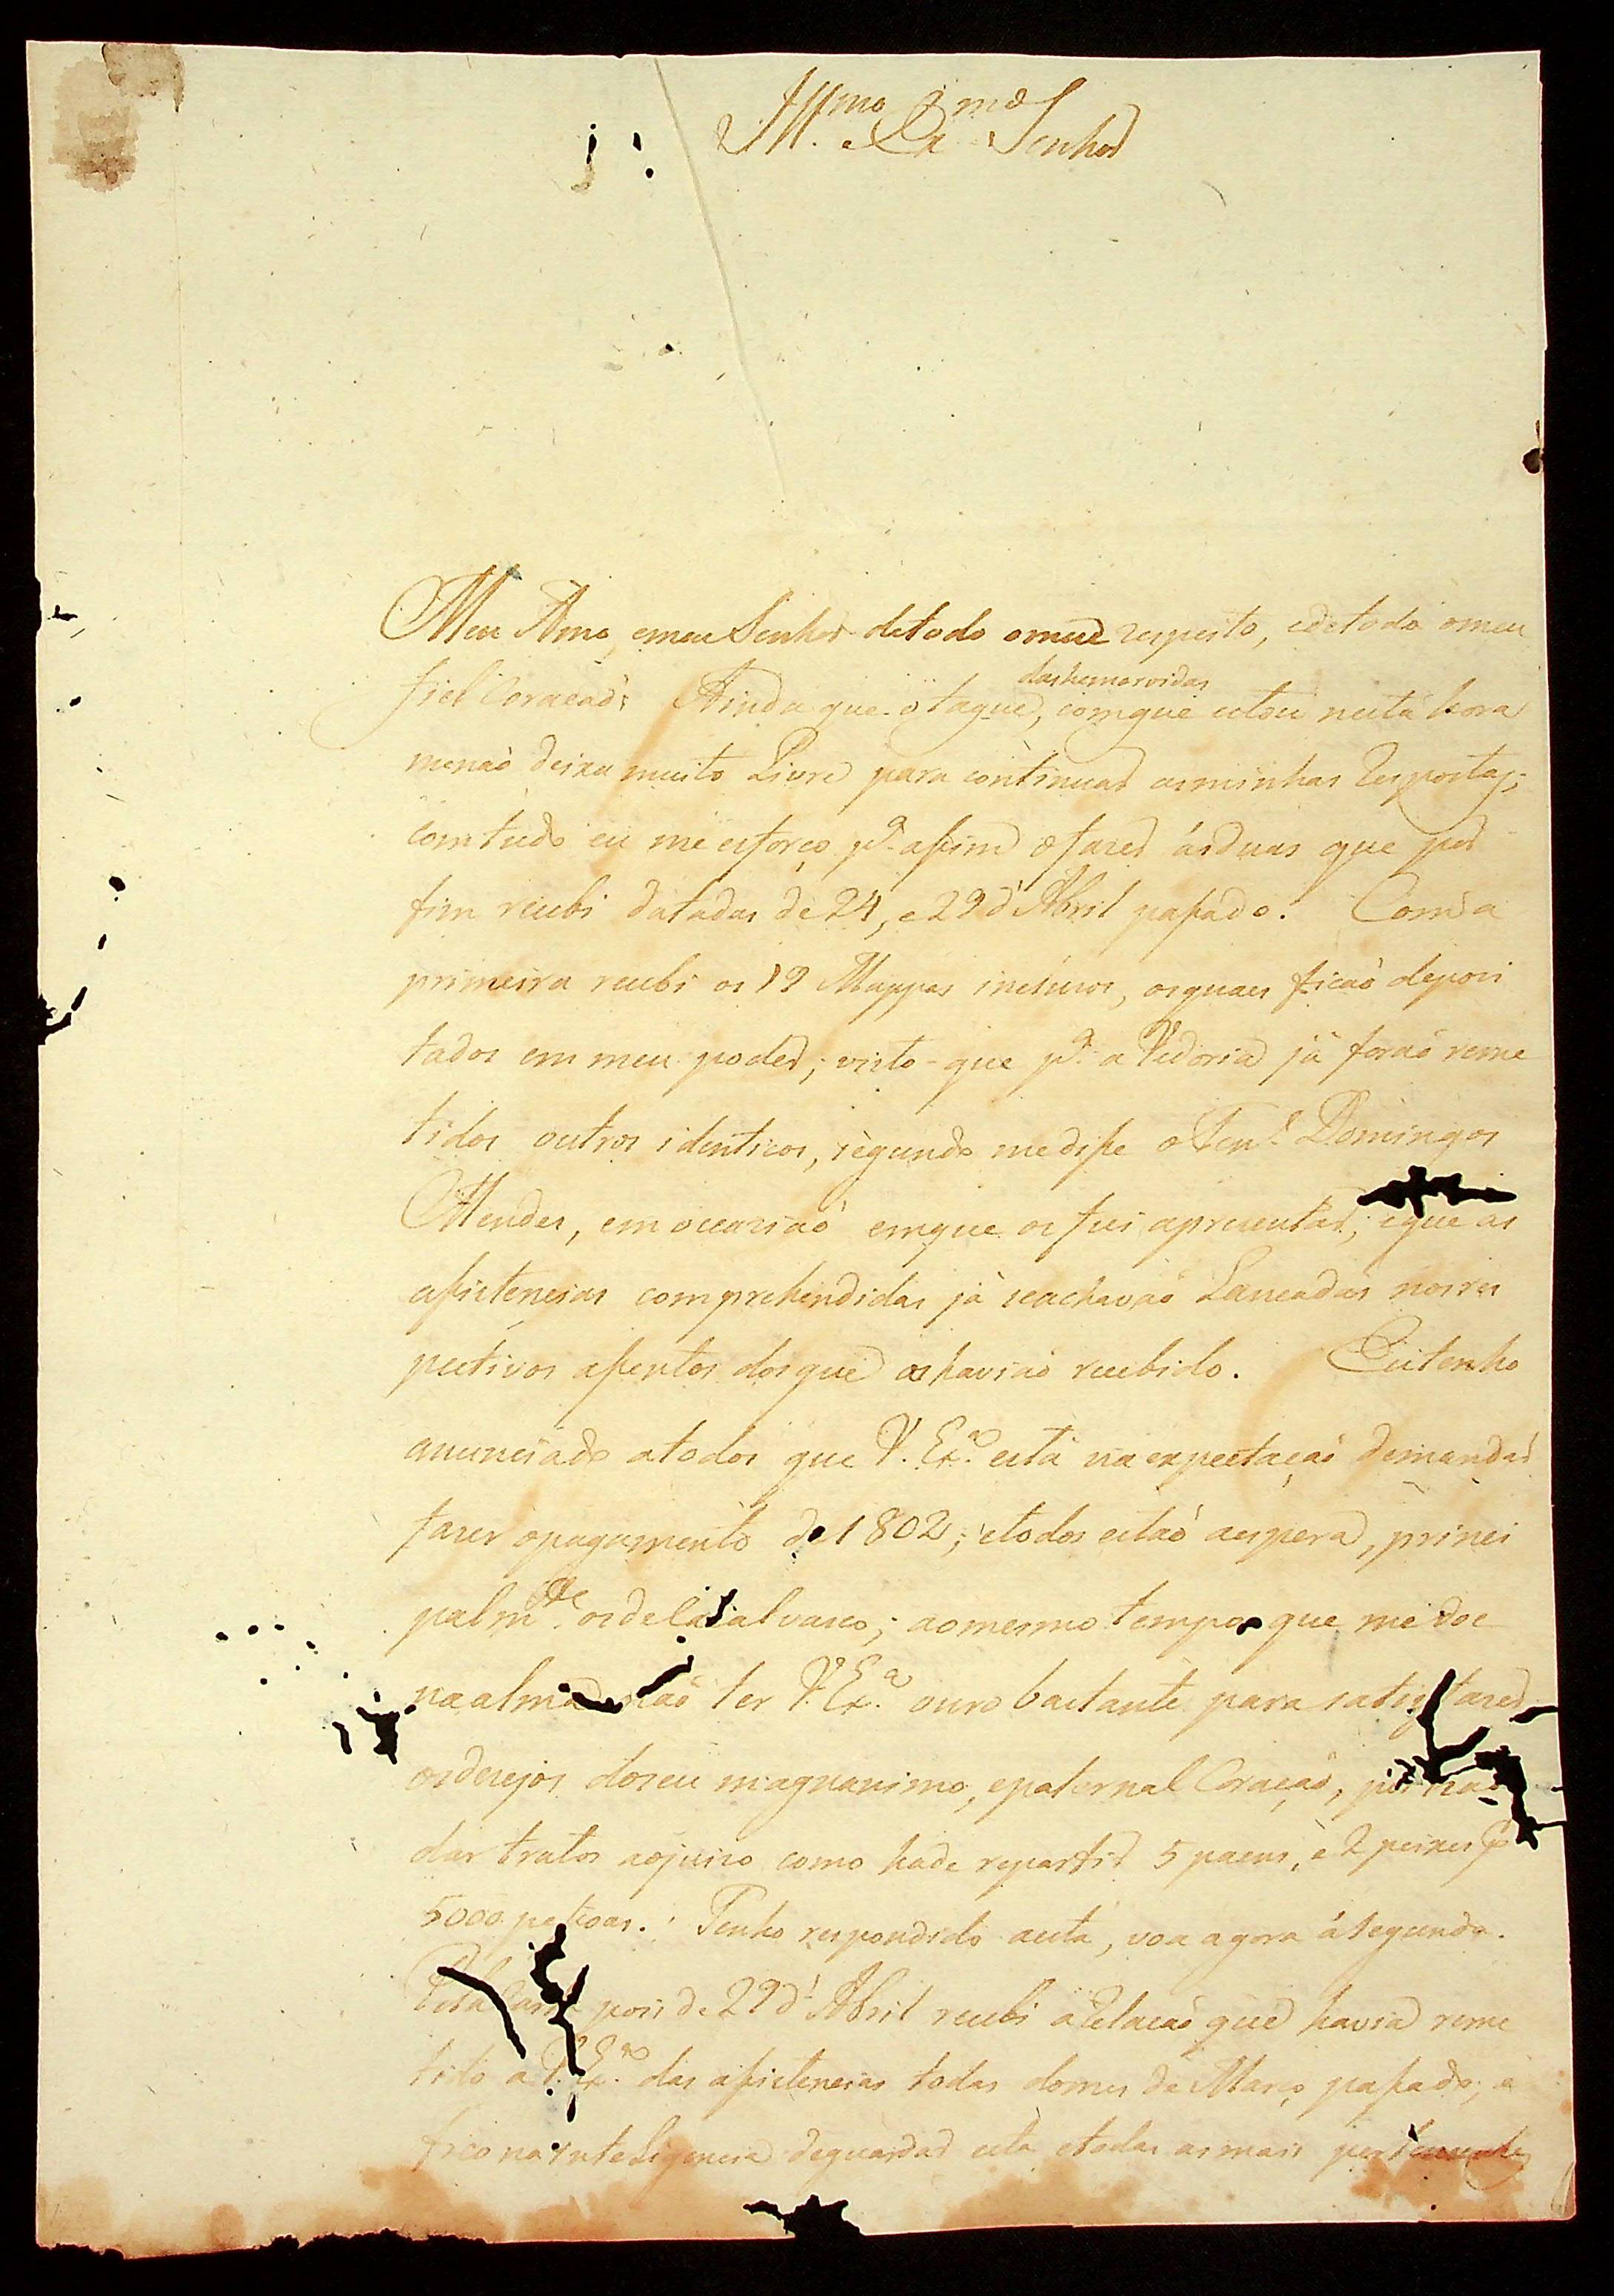 Ill.mo e Ex.mo Senhor
Meu Amo, emeu Senhor detodo omeu respeito, edetodo omeu
fiel Coração: Ainda que o taque, comque estou nesta hora
dashemorroidas
menaõ deixa muito Livre para continuar asminhas Respostas;
comtudo eu me esforço p.a assim o fazer ás duas que por
fim recebi datadas de 24, e 29 d'Abril passado. Com a
primeira recebi os 19 Mappas inclusos, osquaes ficaõ deposi
tados em meu poder; visto que p.a a Vedoria já foraõ reme
tidos outros identicos, segundo medisse o Ten.e Domingos
Mendes, em occaziaõ emque os fui aprezentar, eque as
assistencias comprehendidas já seachavaõ Lançadas nosres
pectivos assentos dosque as haviaõ recebido. Eutenho
anunciado atodos que V. Ex.a está na expectaçaõ demandar
fazer opagamento de 1802; etodos estaõ aespera, princi
palm.te osdeCazalvasco; aomesmo tempo que me doe
naalma naõ ter V. Ex.a ouro bastante para satisfazer
osdezejos doseu magnanimo, epaternal Coraçaõ,
dar tratos aojuizo como hade repartir 5 paens, e 2 peixes p.r
5000 pessoas. Tenho respondido aesta, vou agora ásegunda.
Pela Carta pois de 29 d'Abril recebi aRelaçaõ que havia reme
tido a V. Ex.a das assistencias todas domes de Março passado; e
fico na inteLigencia deguardar esta etodas asmais pertencentes